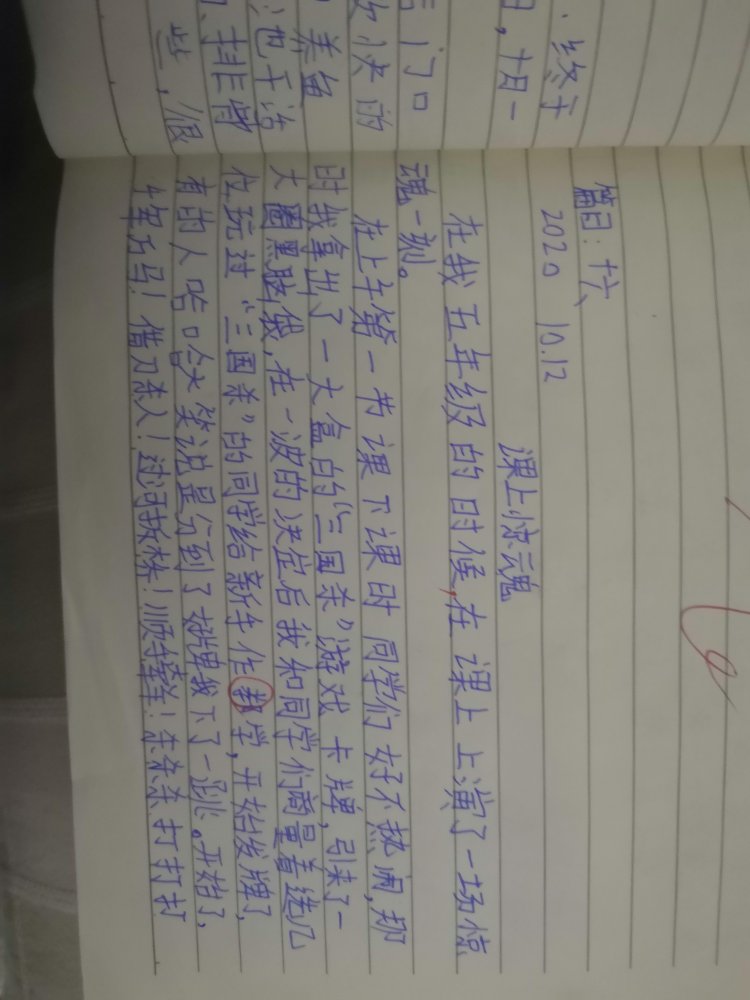 终于
日,十月一
门口
快的
养鱼
也干活
排骨
些,很
篇目:十六
2020 10.12
课上惊魂
在我五年级的时候,在课上上演了一场惊
魂一刻。
在上午第一节课下课时同学们好不热闹,那
时我拿出了一大盒的“三国杀”游戏卡牌,引来了一
大圈黑眼袋,在一波的决定后我和同学们商量着选几
位玩过“三国杀”的同学给新手作教学,开始发牌了,
有的人哈口大笑说是分到了好牌我下了一跳。开始了,
借刀杀人!过河拆桥!顺手牵羊!杀杀杀打打打